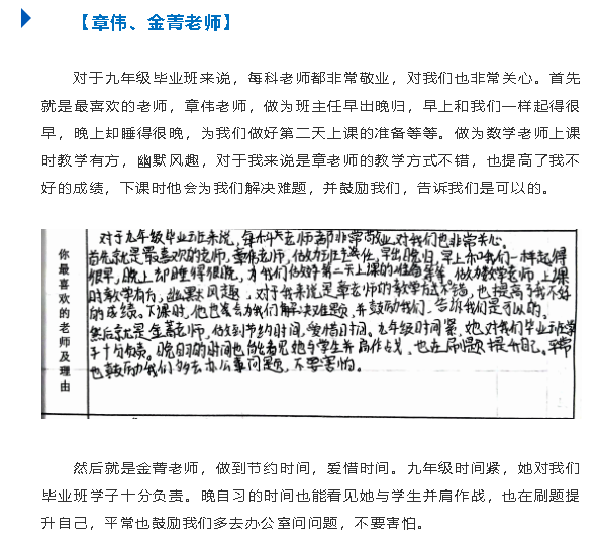 【章伟、金菁老师】
对于九年级毕业班来说，每科老师都非常敬业，对我们也非常关心。首先
就是最喜欢的老师，章伟老师，做为班主任早出晚归，早上和我们一样起得很
早，晚上却睡得很晚，为我们做好第二天上课的准备等等。做为数学老师上课
时教学有方，幽默风趣，对于我来说是章老师的教学方式不错，也提高了我不
好的成绩，下课时他会为我们解决难题，并鼓励我们，告诉我们是可以的。
你最喜欢的老师及理由
对于九年级毕业班来说，每科老师都非常敬业，对我们也非常关心。
首先就是最喜欢的老师，章伟老师，做为班主任，早出晚归，早上和我们一样起得
很早，晚上却睡得很晚，为我们做好第二天上课的准备等等，做为数学老师，上课
时教学有方，幽默风趣，对于我来说是章老师的教学方式不错，也提高了我不好
的成绩。下课时，他也会为我们解决难题，并鼓励我们，告诉我们是可以的。
然后就是金菁老师，做到节约时间，爱惜时间。九年级时间紧，她对我们毕业班学
子十分负责。晚自习的时间也能看见她与学生并肩作战，也在刷题提升自己。平常
也鼓励我们多去办公室问问题，不要害怕。
然后就是金菁老师，做到节约时间，爱惜时间。九年级时间紧，她对我们
毕业班学子十分负责。晚自习的时间也能看见她与学生并肩作战，也在刷题提
升自己，平常也鼓励我们多去办公室问问题，不要害怕。